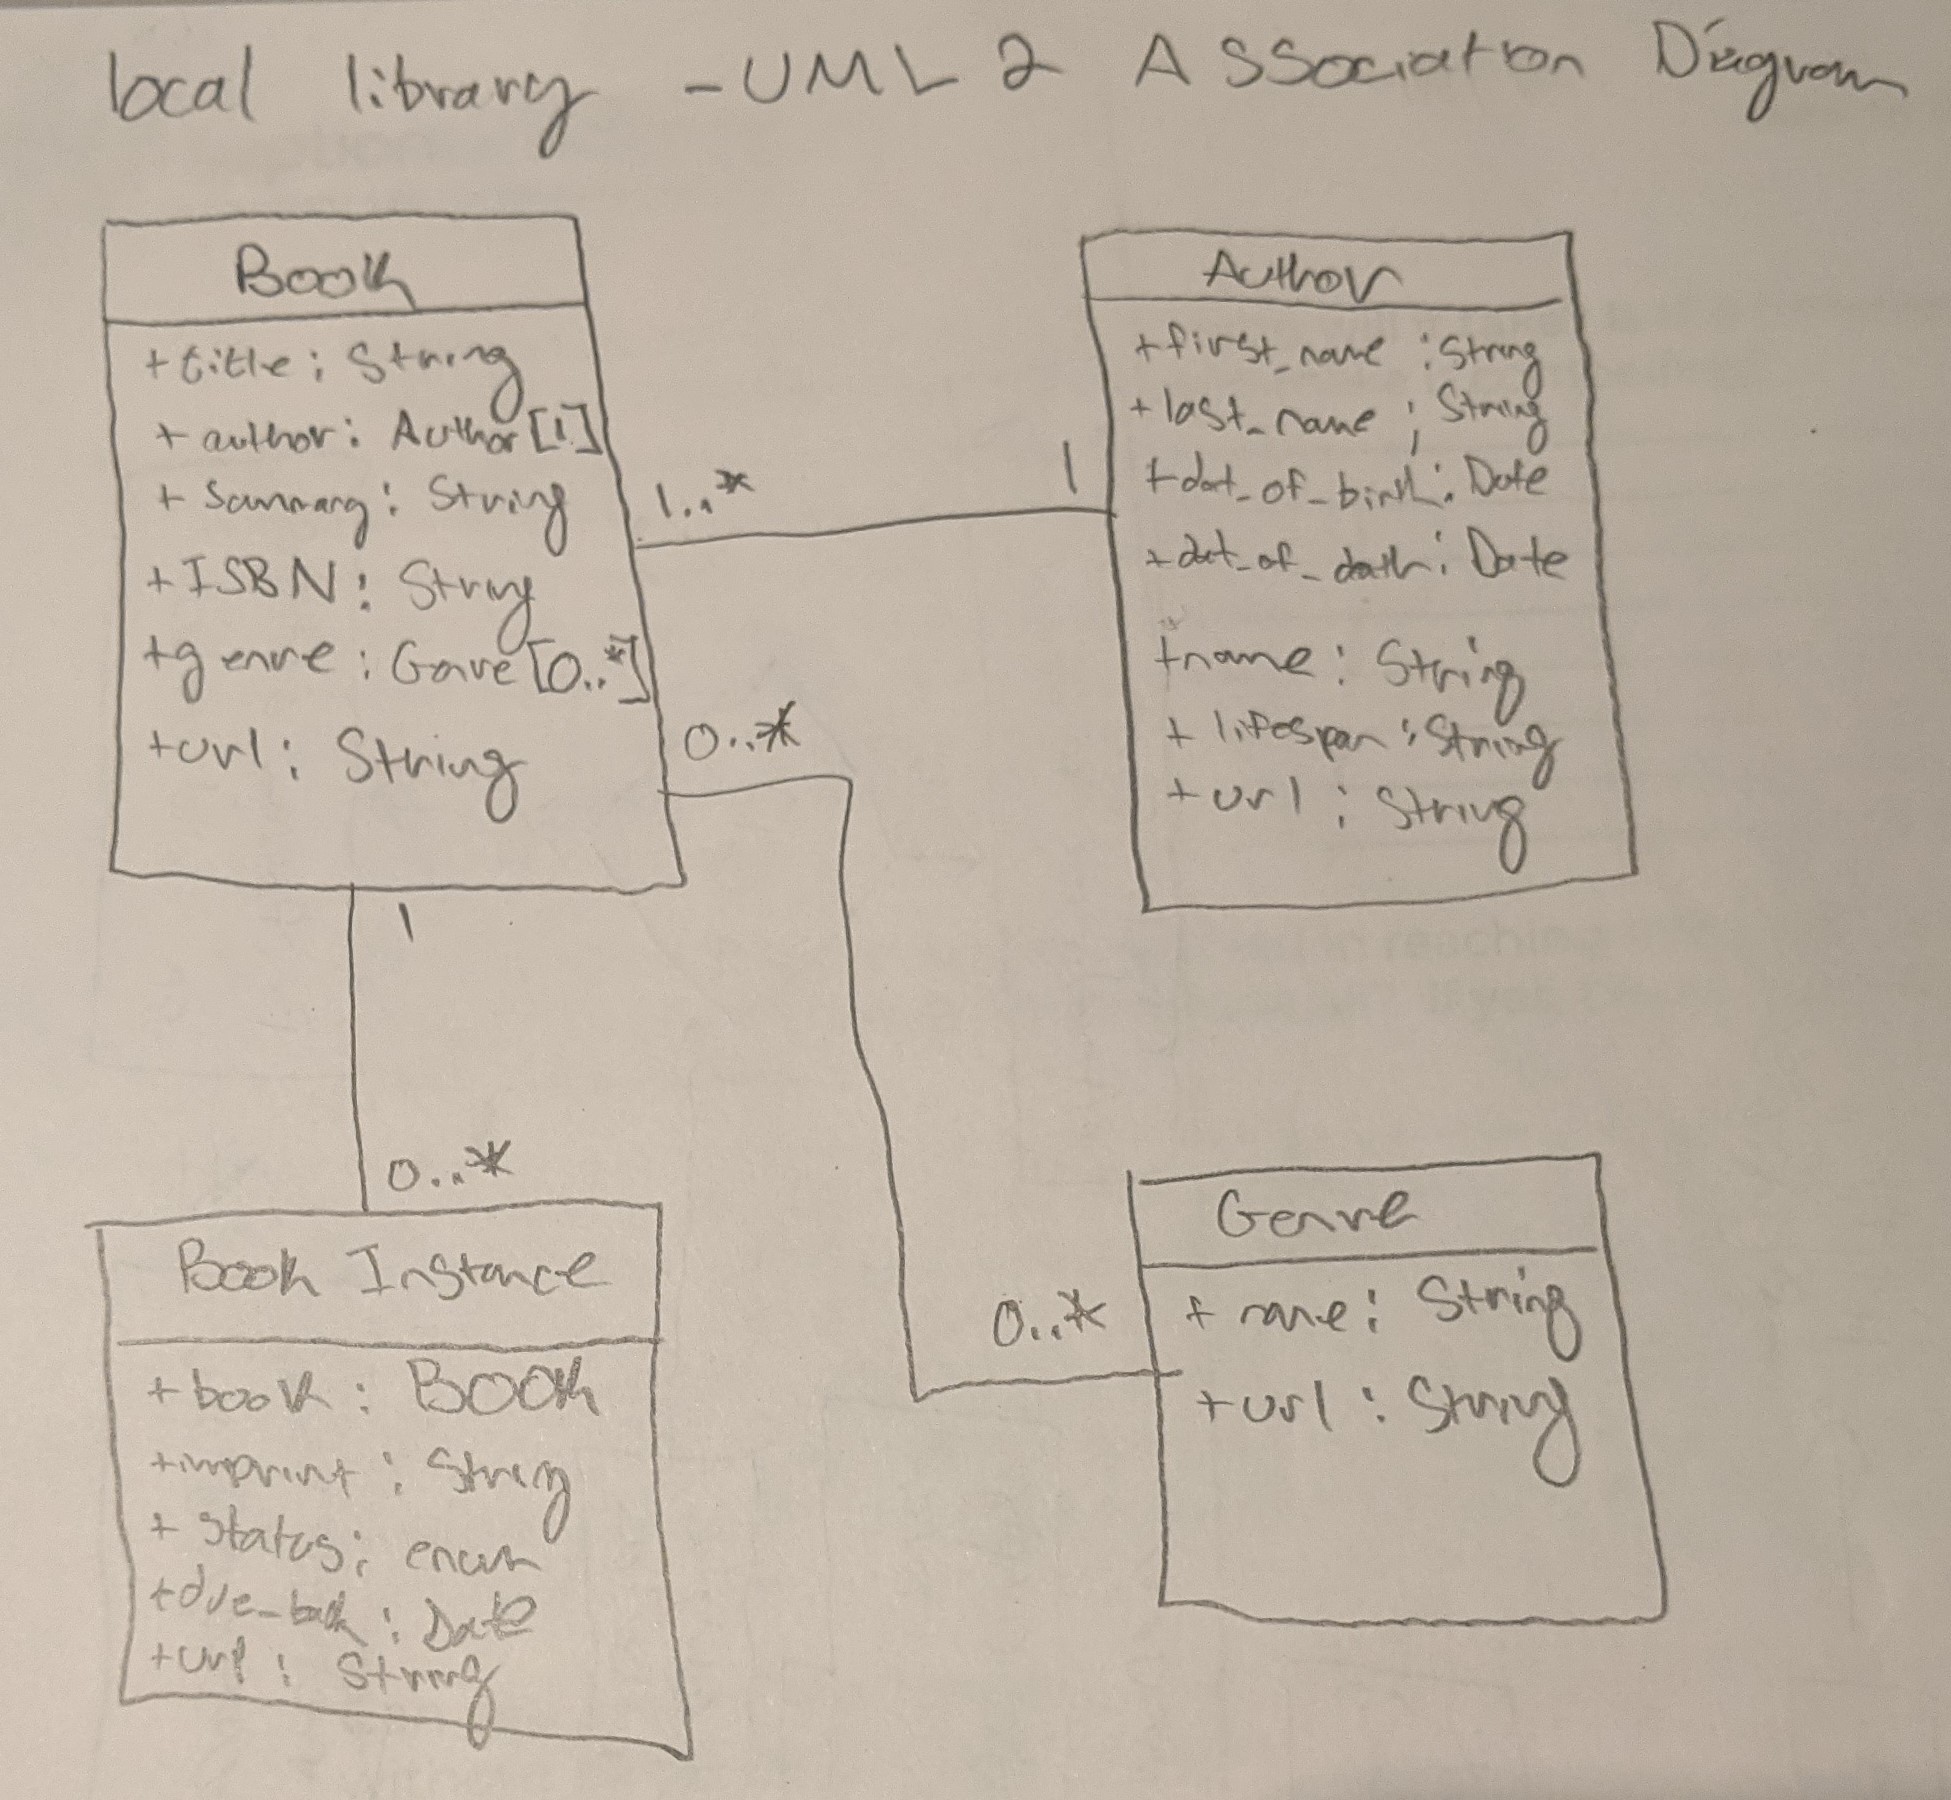 local library - UML 2 Association Diagram
Book
+ title : String
+ author : Author [1]
+ Summary : String
+ ISBN : String
+ genre : Genre [0..*]
+ url : String
1..*
1
Author
+ first_name : String
+ last_name : String
+ dat_of_birth : Date
+ dat_of_dath : Date
+ name : String
+ lifespan : String
+ url : String
0..*
1
0..*
Book Instance
+ book : BOOK
+ imprint : String
+ status : enum
+ due_back : Date
+ url : String
0..*
Genre
+ name : String
+ url : String
in reaching
If you